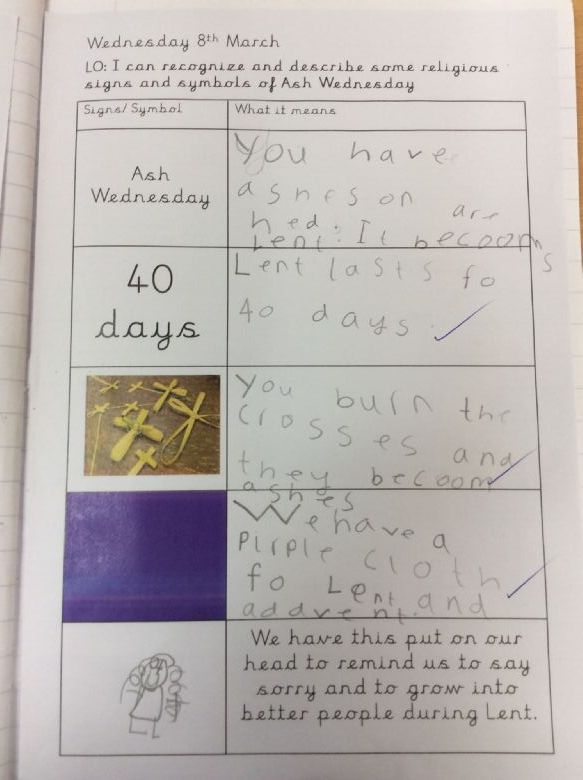 Wednesday 8th March
LO: I can recognize and describe some religious
signs and symbols of Ash Wednesday
Signs/ Symbol
What it means
Ash
Wednesday
You have
ashes on
hed. are
Lent. It becooms
40
days
Lent lasts fo
40 days
You burn the
crosses
they becoom and
ashes
We have a
pirple cloth
fo Lent and
addvent.
We have this put on our
head to remind us to say
sorry and to grow into
better people during Lent.